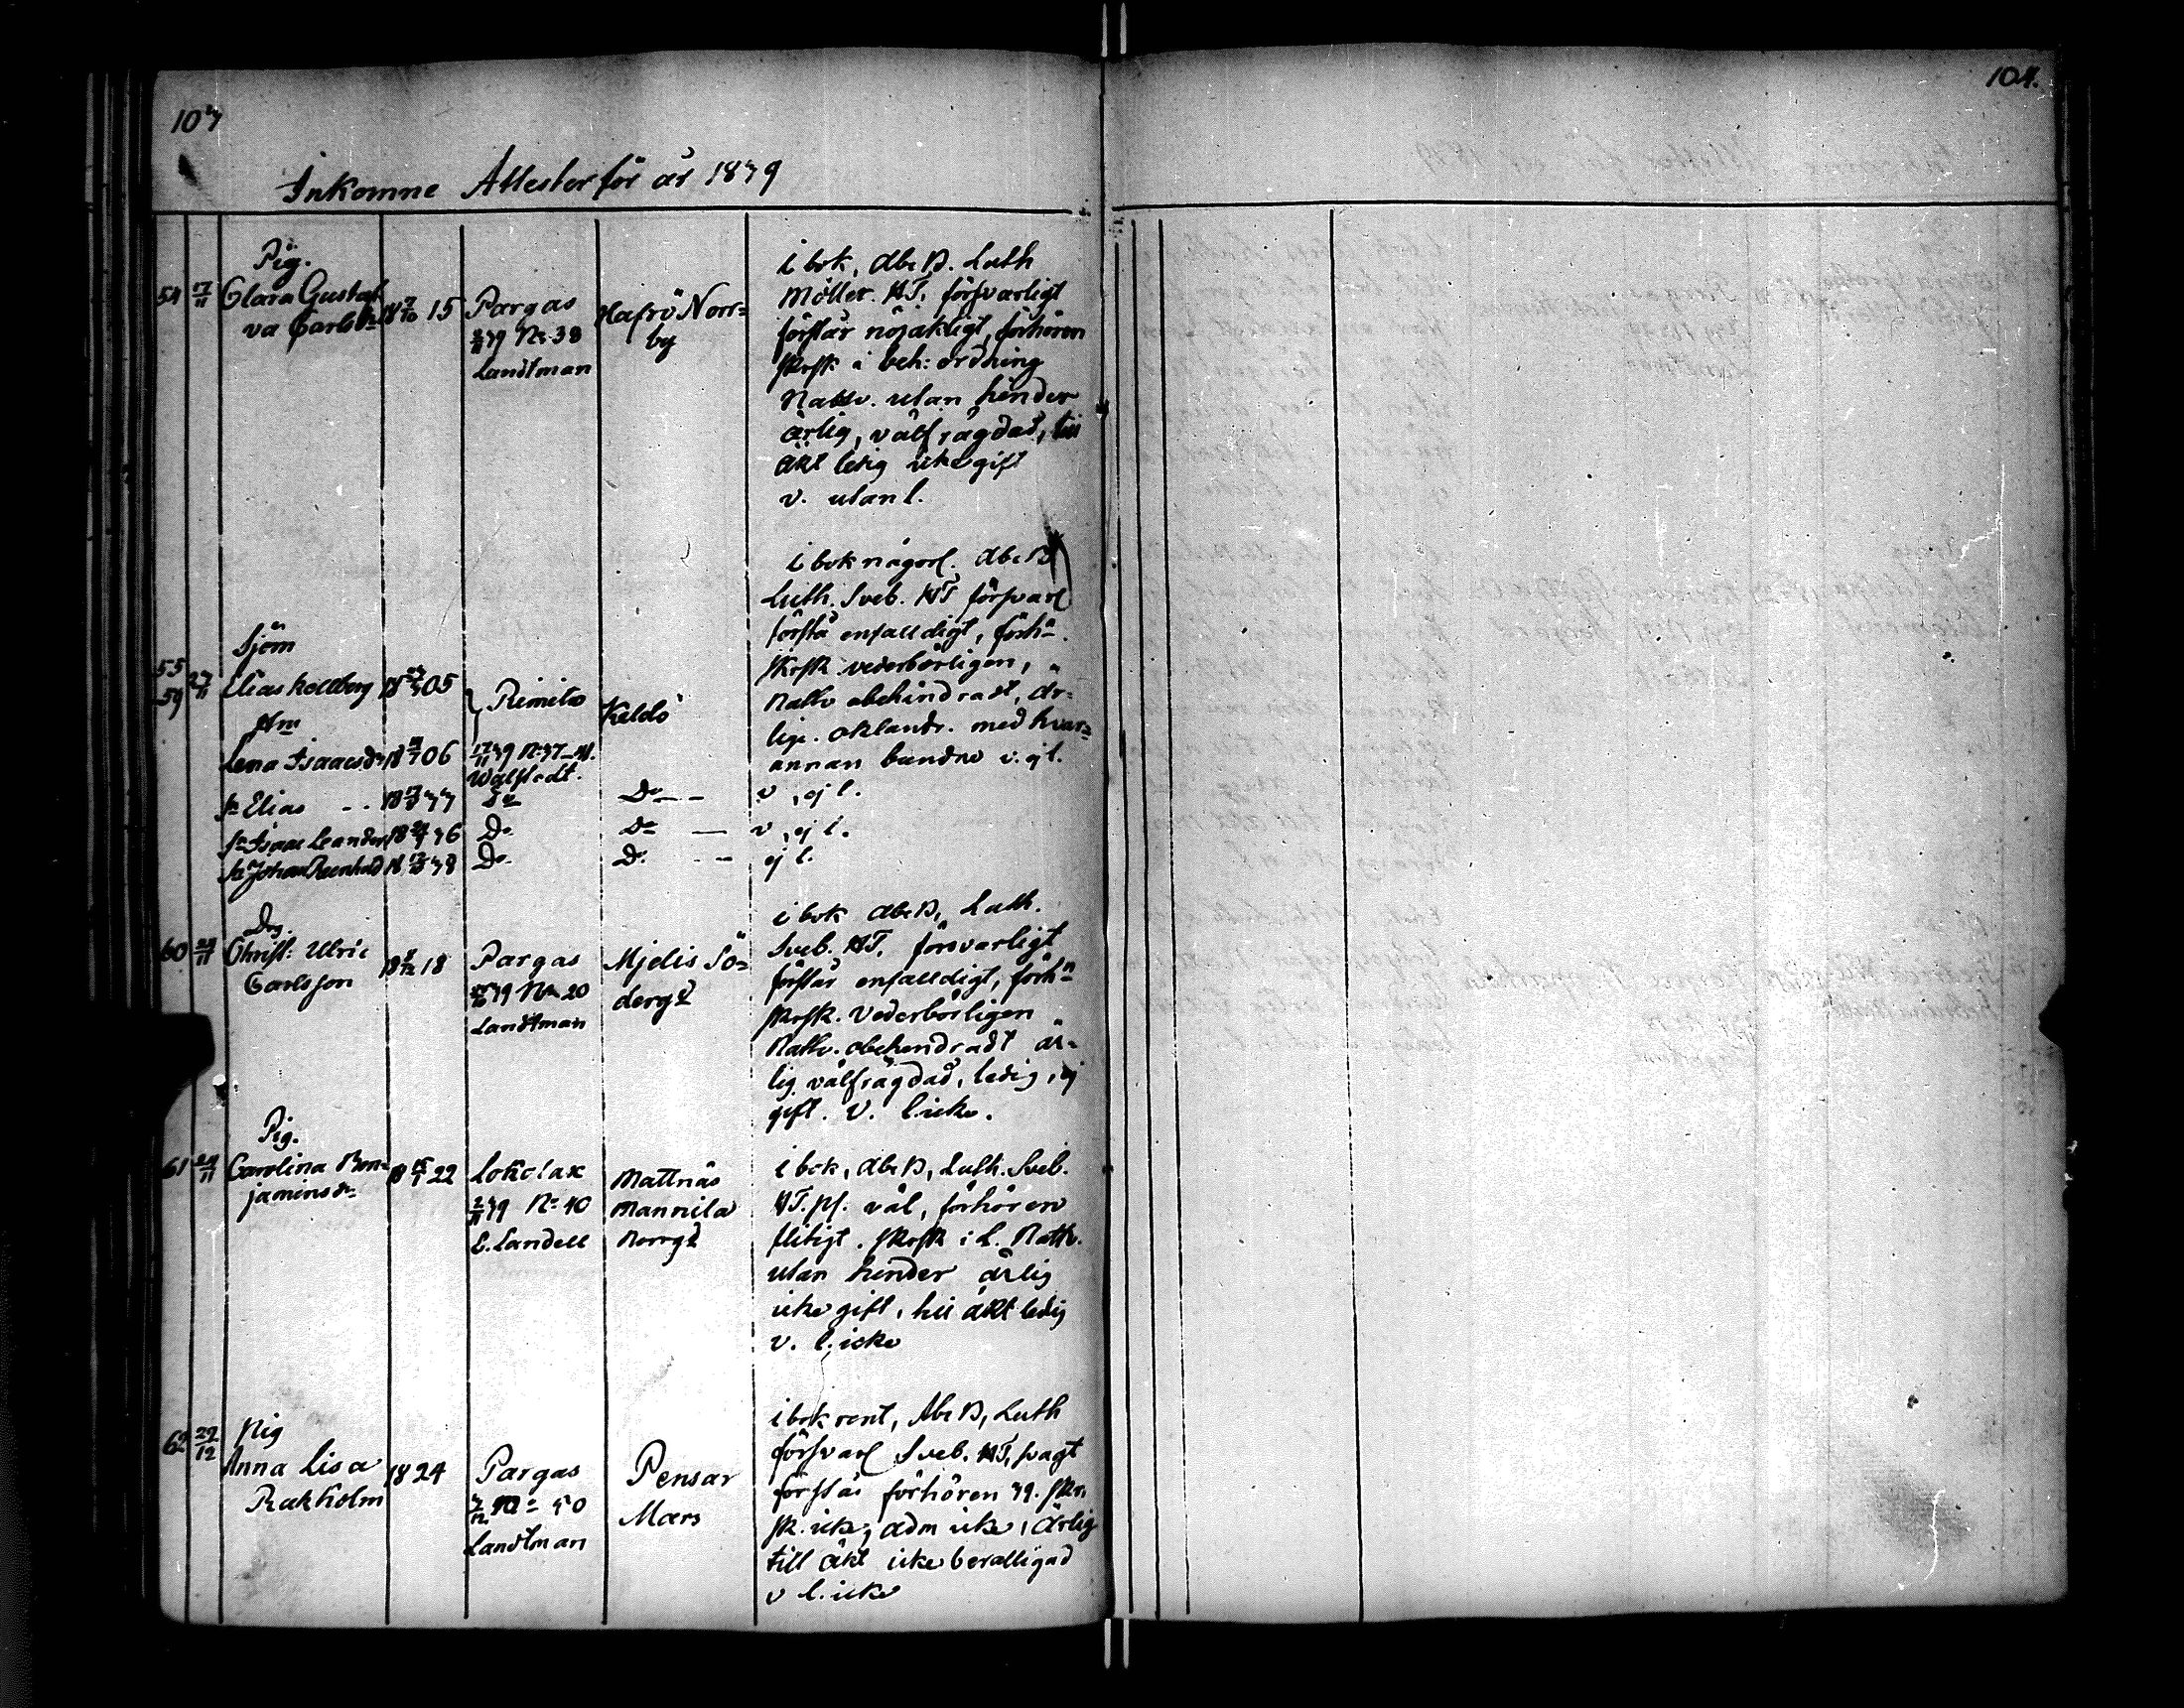 103
104.
Inkomne Attester för år 1839
Pig.
54 17/11 Clara Gustaf
va Carlsdr 18 7/10 15 Pargas
39 No 38
Landtman
Hafrö Norr=
by
i bok, Abc B. Luth
Möller. HT. försvarligt
förstår nöjaktigt, förhören
skrsk i beh: ordning
Nattv. utan hinder
ärlig, välfrägdad, till
äkt ledig icke gift
v. utan l.
55 27/11 Sjöm
59 Elias Kellberg 18 05
Lena Isaacsdr 18 06
Rimito
17/11 39 No 37-41.
Walstedt.
Keldö
i bok någorl. Abc B
Luth. Sveb. HT försvarl
förstå enfalldigt, förhn.
skrsk vederbörligen,
Nattv obehindradt, är-
lige. oklandr. med hvar=
annan bundne v. ej l.
sn Elias - - 18 33 Do Do - - v, ej l.
sn Isaac Leander 18 36 Do Do — v, ej l.
sn Johan Reinhold 18 38 Do Do - - ej l.
Drg.
60 Christ: Ulric
Carlsson 18 18 Pargas
39 No 20
Landtman
Mjelis Sö=
dergd
i bok Abc B, Luth.
Sveb. HT. försvarligt
förstår enfalldigt, förhn
skrsk. vederbörligen
Nattv. obehindradt är-
lig välfrägdad, ledig, ej
gift. v. l. icke.
Pig.
61 24/11 Carolina Ben=
jaminsdr 18 22 Lokolax
39 No 40
E. Landell
Mattnäs
Mannila
Norrgd
i bok, Abc B, Luth. Sveb.
HT. ps. väl, förhören
flitigt. skrsk i L. Nattv.
utan hinder ärlig
icke gift, till äkt ledig
v. l. icke
62 22/12 Pig
Anna Lisa
Rakholm 1824 Pargas
No 50
Landtman
Pensar
Mars
i bok rent, Abc B, Luth
försvarl Sveb. HT, svagt
förstår förhören 39. skr,
sk. icke, adm icke, ärlig
till äkt icke berättigad
v l. icke